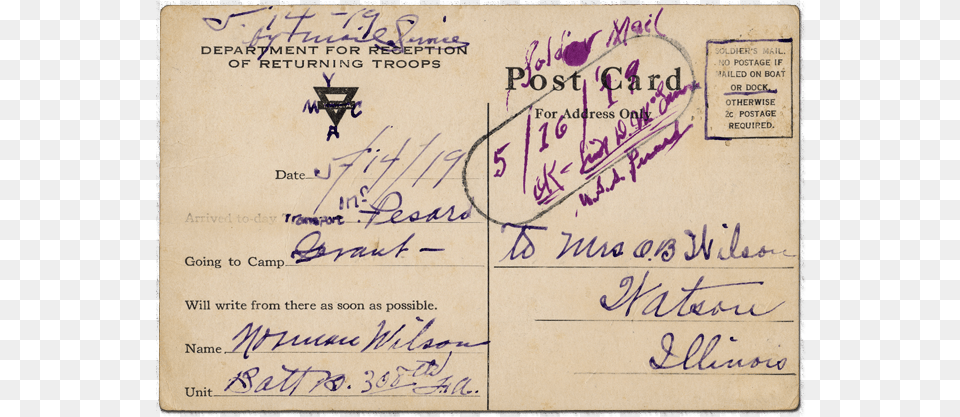 5-14-19
DEPARTMENT FOR RECEPTION
OF RETURNING TROOPS
Y
M C
A
Date 5/14/19
Arrived to-day Transport Pesaro
Going to Camp Grant -
Will write from there as soon as possible.
Name Norman Wilson
Unit Batt B. 308th F.A.
Soldier Mail
Post Card
For Address Only
5/16/19
OK -
U.S.S.
SOLDIER'S MAIL.
NO POSTAGE IF
MAILED ON BOAT
OR DOCK.
OTHERWISE
2c POSTAGE
REQUIRED.
To Mrs O.B Wilson
Watson
Illinois